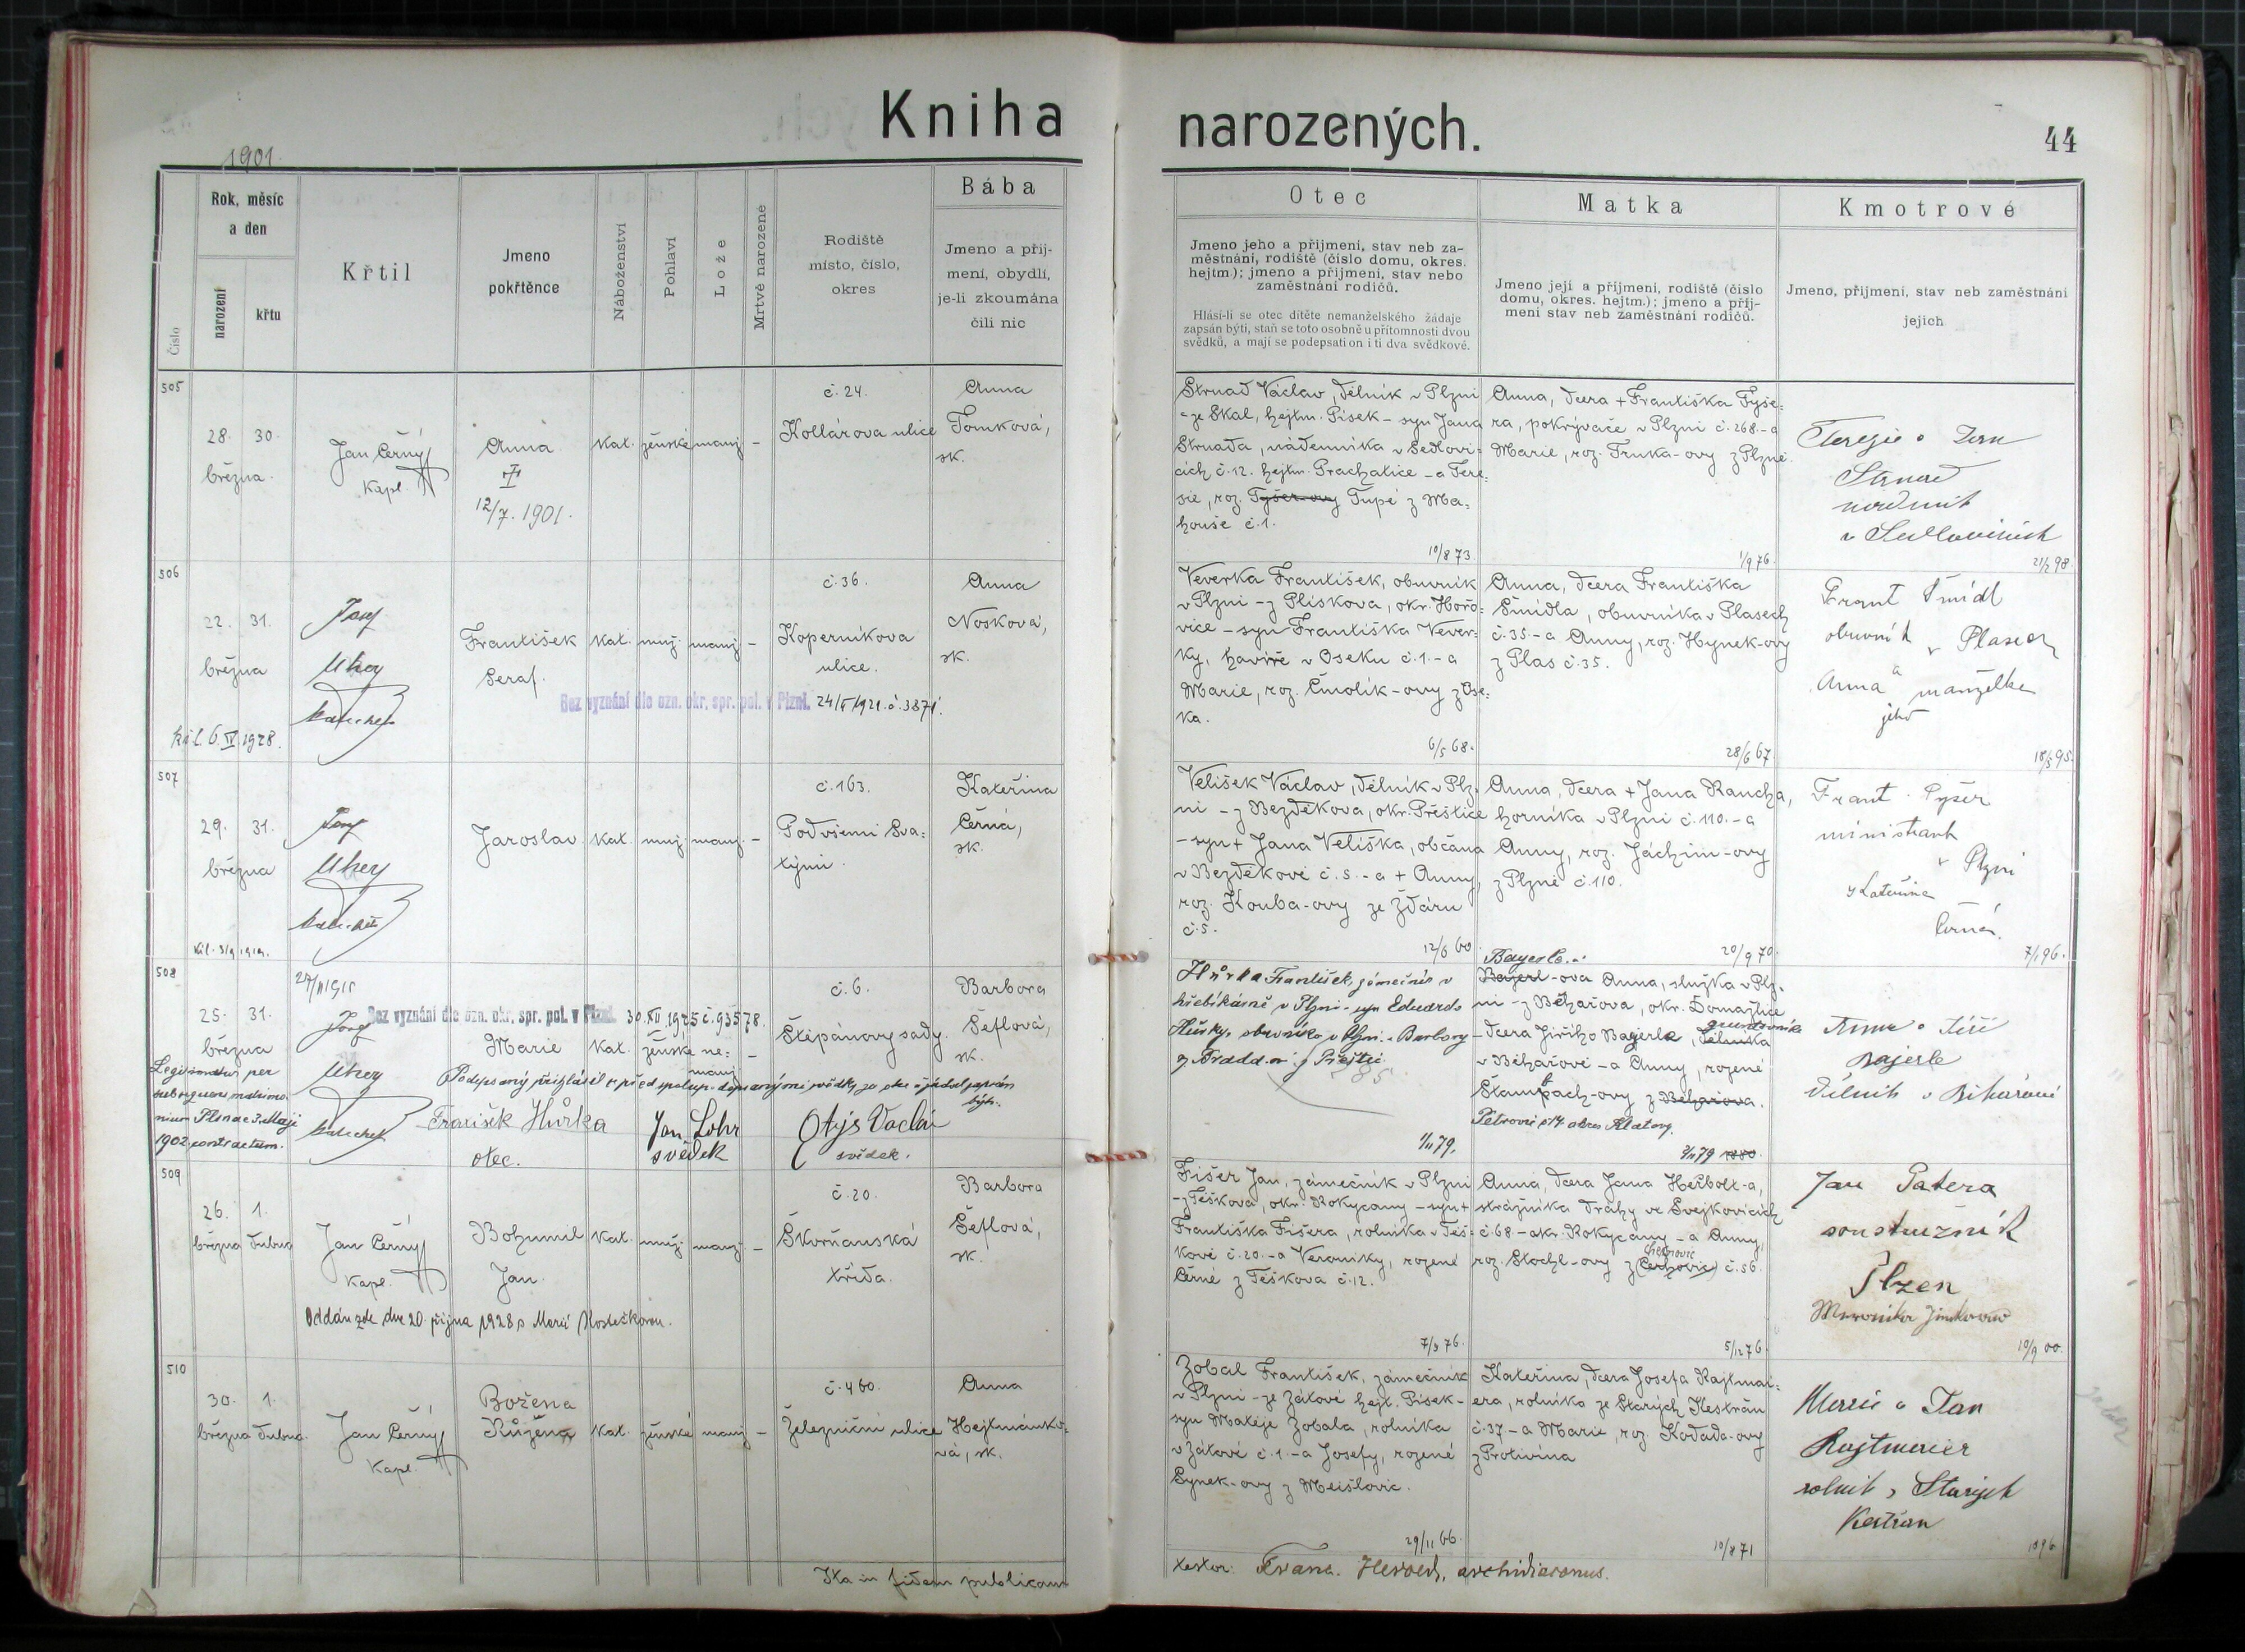 Kniha narozených.
44
1901.
Číslo
Rok, měsíc
a den
narození
křtu
Křtil
Jmeno
pokřtěnce
Náboženství
Pohlaví
Lože
Mrtvě narozené
Rodiště
místo, číslo,
okres
Bába
Jmeno a příj-
mení, obydlí,
je-li zkoumána
čili nic
Otec
Jmeno jeho a přijmení, stav neb za-
městnání, rodiště (číslo domu, okres.
hejtm.); jmeno a přijmení, stav nebo
zaměstnání rodičů.
Hlásí-li se otec dítěte nemanželského žádaje
zapsán býti, staň se toto osobně u přítomnosti dvou
svědků, a mají se podepsati on i ti dva svědkové.
Matka
Jmeno její a přijmení, rodiště (číslo
domu, okres. hejtm.); jmeno a příj-
mení stav neb zaměstnání rodičů.
Kmotrové
Jmeno, přijmení, stav neb zaměstnání
jejich
505
28. 30.
března.
Jan Černý
Kapl.
Anna
12/7. 1901.
Kat. ženské manž. –
č. 24.
Kollárova ulice
Anna
Tomková,
zk.
Strnad Václav, dělník v Plzni
- ze Skal, hejtm. Písek - syn Jana
Strnada, nádenníka v Sedlovi-
cích č. 12. hejtm. Prachatice - a Tere-
sie, roz. Tyšer-ovy Tupé z Ma-
houše č. 1.
10/8 73.
Anna, dcera + Františka Tyše-
ra, pokrývače v Plzni č. 268. - a
Marie, roz. Trnka-ovy z Plzně.
1/9 76.
Terezie a Jan
Strnad
v Sedlovicích
21/2 98.
506
22. 31.
března
kál. 6. IV. 1928.
Josef
Uhey
katechet
František
Seraf.
Kat. muž. manž. –
č. 36.
Koperníkova
ulice.
Anna
Nosková,
zk.
Bez vyznání dle ozn. okr. spr. pol. v Plzni. 24/V 1921. č. 3371.
Veverka František, obuvník
v Plzni - z Plískova, okr. Hořo-
vice - syn Františka Vever-
ky, havíře v Oseku č. 1. - a
Marie, roz. Čmolík-ovy z Ose-
ka.
6/5 68.
Anna, dcera Františka
Šmídla, obuvníka v Plasech
č. 35. - a Anny, roz. Hynek-ovy
z Plas č. 35.
28/6 67
Frant Šmídl
obuvník v Plasech
a
Anna manželka
jeho
18/5 95.
507
29. 31.
března
Josef
Uhey
katechet
Jaroslav
Kat. muž. manž. –
č. 163.
Pod všemi Sva-
tými.
Kateřina
Černá,
zk.
Velíšek Václav, dělník v Plz-
ni - z Bezděkova, okr. Přeštice
- syn + Jana Velíška, občana
v Bezděkově č. 5. - a + Anny,
roz. Kouba-ovy ze Žďáru
č. 5.
12/6 60.
Anna, dcera + Jana Raucha,
horníka v Plzni č. 110. - a
Anny, roz. Jáchim-ovy
z Plzně č. 110.
20/9 70.
Frant. Pyšer
ministrant
v Plzni
Kateřina
Černá.
7/1 96.
508
25. 31.
března
Legitimatus per
subsequens matrimo-
nium Plznae 3. Maji
1902 contractum.
Josef
Uhey
katechet
Bez vyznání dle ozn. okr. spr. pol. v Plzni. 30. XII 1925 č. 93578.
Marie
Kat. ženské ne-
manž. –
č. 6.
Štěpánovy sady.
Barbora
Šeflová,
zk.
František Hůrka
otec.
Jan Lohr
svědek
Otýs Vaclav
svědek.
Hůrka František, zámečník v
hřebíkárně v Plzni - syn Eduarda
Hůrky, obuvníka v Plzni a Barbory
1/11 79.
Bayerl-ova Anna, služka v Plz-
ni - z Běhařova, okr. Domažlice
- dcera Jiřího Bayerle, dělníka
gruntovníka
v Běhařově - a Anny, rozené
Štampach-ovy z Běhařova.
Petrovic č 14. okres Klatovy.
2/11 79 1880
Anna a Jiří
Bajerle
dělník v Běhařově
509
26. 1.
března dubna
Jan Černý
Kapl.
Bohumil
Jan.
Kat. muž. manž. –
č. 20.
Skvrňanská
třída.
Barbora
Šeflová,
zk.
Oddán zde dne 20. října 1928 s Marií Kostečkovou.
Fišer Jan, zámečník v Plzni
- z Těškova, okr. Rokycany - syn +
Františka Fišera, rolníka v Těš-
kově č. 20. - a Veroniky, rozené
Černé z Těškova č. 12.
7/3 76.
Anna, dcera Jana Heřbolt-a,
strážníka dráhy ve Švejkovicích
č. 68 - okr. Rokycany - a Anny,
roz. Stochl-ovy z (Cerhovic) č. 56.
5/12 76.
Jan Patera
soustružník
Plzen
10/9 00.
510
30. 1.
března dubna.
Jan Černý
Kapl.
Božena
Růžena
Kat. ženské manž. –
č. 460.
Železniční ulice
Anna
Hejtmánko-
vá, zk.
Zobal František, zámečník
v Plzni - ze Zátavé hejt. Písek -
syn Matěje Zobala, rolníka
v Zátavé č. 1. - a Josefy, rozené
Synek-ovy z Meislovic.
29/11 66.
Kateřina, dcera Josefa Rajtmai-
era, rolníka ze Starých Kestřan
č. 37 - a Marie, roz. Kodada-ovy
z Protivína
10/8 71
Marie a Jan
Rajtmaier
rolník z Starých
Kestřan
1896
Ita in fidem publicam
testor: Franc. Herold, archidiaconus.